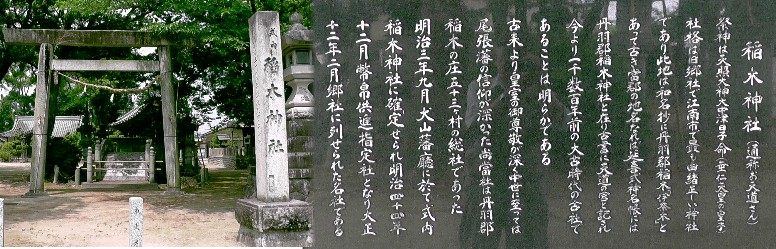 式内 稲木神社
稲木神社(通称 お天道さん)
祭神は天照大神大津日子命(垂仁天皇の皇子)
社格は旧郷社で江南市で最も由緒正しい神社
であり此地は和名抄に丹羽郡稲木伊奈木と
あって古き宮郡の地名なれば延喜式神名帳には
丹羽郡稲木神社と在り古言に天道の宮と記され
今より一千数百年前の大古時代の古社で
あることは明らかである
古来より皇室の御尊敬が深く中世に至っては
尾張藩の信仰が深かった尚当社は丹羽郡
稲木の庄五十三村の総社であった
明治三年九月犬山藩廳に於て式内
稲木神社に確定せられ明治四十四年
十二月幣帛供進指定社となり大正
十二年二月郷社に列せられた名社である